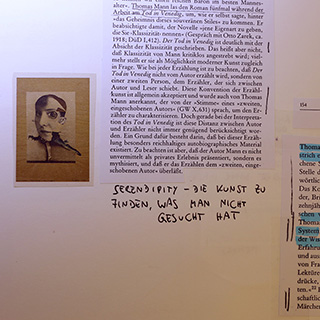 alter", Thomas Mann las den Roman fünfmal während der
Arbeit am Tod in Venedig, um, wie er selbst sagte, hinter
»das Geheimnis dieses souveränen Stils« zu kommen. Er
beabsichtigte damit, der Novelle »jene Eigenart zu geben,
die Sie ›Klassizität‹ nennen« (Gespräch mit Otto Zarek, ca.
1918; DüD I,412). Der Tod in Venedig ist deutlich mit der
Absicht der Klassizität geschrieben. Das heißt aber nicht,
daß Klassizität von Mann kritiklos angestrebt wird; viel-
mehr stellt er sie als Möglichkeit moderner Kunst zugleich
in Frage. Wie bei jeder Erzählung ist zu beachten, daß Der
Tod in Venedig nicht vom Autor erzählt wird, sondern von
einer zweiten Person, dem Erzähler, der sich zwischen
Autor und Leser schiebt. Diese Konvention der Erzähl-
kunst ist allgemein akzeptiert und wurde auch von Thomas
Mann anerkannt, der von der »Stimme« eines »zweiten,
eingeschobenen Autors« (GW X,631) sprach, um den Er-
zähler zu charakterisieren. Doch gerade bei der Interpreta-
tion des Tod in Venedig ist diese Distanz zwischen Autor
und Erzähler nicht immer genügend berücksichtigt wor-
den. Ein Grund dafür besteht darin, daß bei dieser Erzäh-
lung besonders reichhaltiges autobiographisches Material
existiert. Zu beachten ist aber, daß der Autor Mann es nicht
unvermittelt als privates Erlebnis präsentiert, sondern es
mythisiert, und daß er das Erzählen dem »zweiten, einge-
schobenen Autor« überläßt.
SERENDIPITY - DIE KUNST ZU
FINDEN, WAS MAN NICHT
GESUCHT HAT
154
Thoma
strich e
Stelle d
wörtlich
das, der
der, Bri
zehnjäh
Thomas
System
der Wie
Erfahru
und aus
von Fra
Lektüre
drücke,
ten.«
schaftlic
Märchen